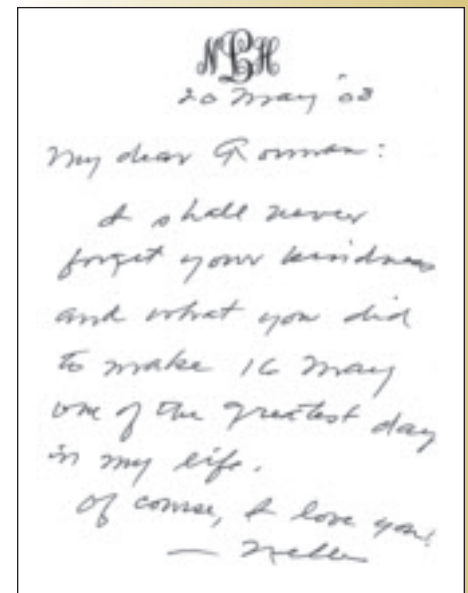 NLH
20 May
My dear Gorman:
I shall never
forget your kindness
and what you did
to make 16 May
one of the greatest day
in my life.
Of course, I love you!
— Nelle